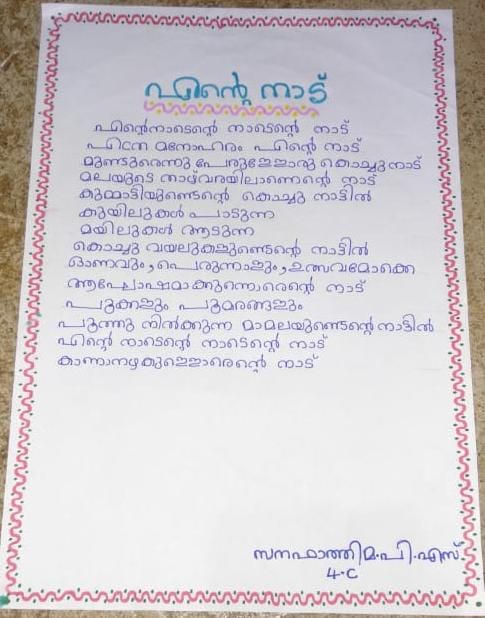 എന്റെ നാട്
എന്റെനാടെന്റെ നാടെന്റെ നാട്
എന്ത മനോഹരം എന്റെ നാട്
മുണ്ടൂരെന്നു പേരുള്ളോരു കൊച്ചുനാട്
മലയുടെ താഴ്‌വരയിലാണെന്റെ നാട്
കുമ്മാട്ടിയുണ്ടെന്റെ കൊച്ചു നാട്ടിൽ
കുയിലുകൾ പാടുന്ന
മയിലുകൾ ആടുന്ന
കൊച്ചു വയലുകളുണ്ടെന്റെ നാട്ടിൽ
ഓണവും, പെരുന്നാളും, ഉത്സവമൊക്കെ
ആഘോഷമാക്കുന്നൊരെന്റെ നാട്
പൂക്കളും പൂമരങ്ങളും
പൂത്തു നിൽക്കുന്ന മാമലയുണ്ടെന്റെ നാട്ടിൽ
എന്റെ നാടെന്റെ നാടെന്റെ നാട്
കാണാനഴകുള്ളൊരെന്റെ നാട്
സനഫാത്തിമ.പി.എസ്.
4.C